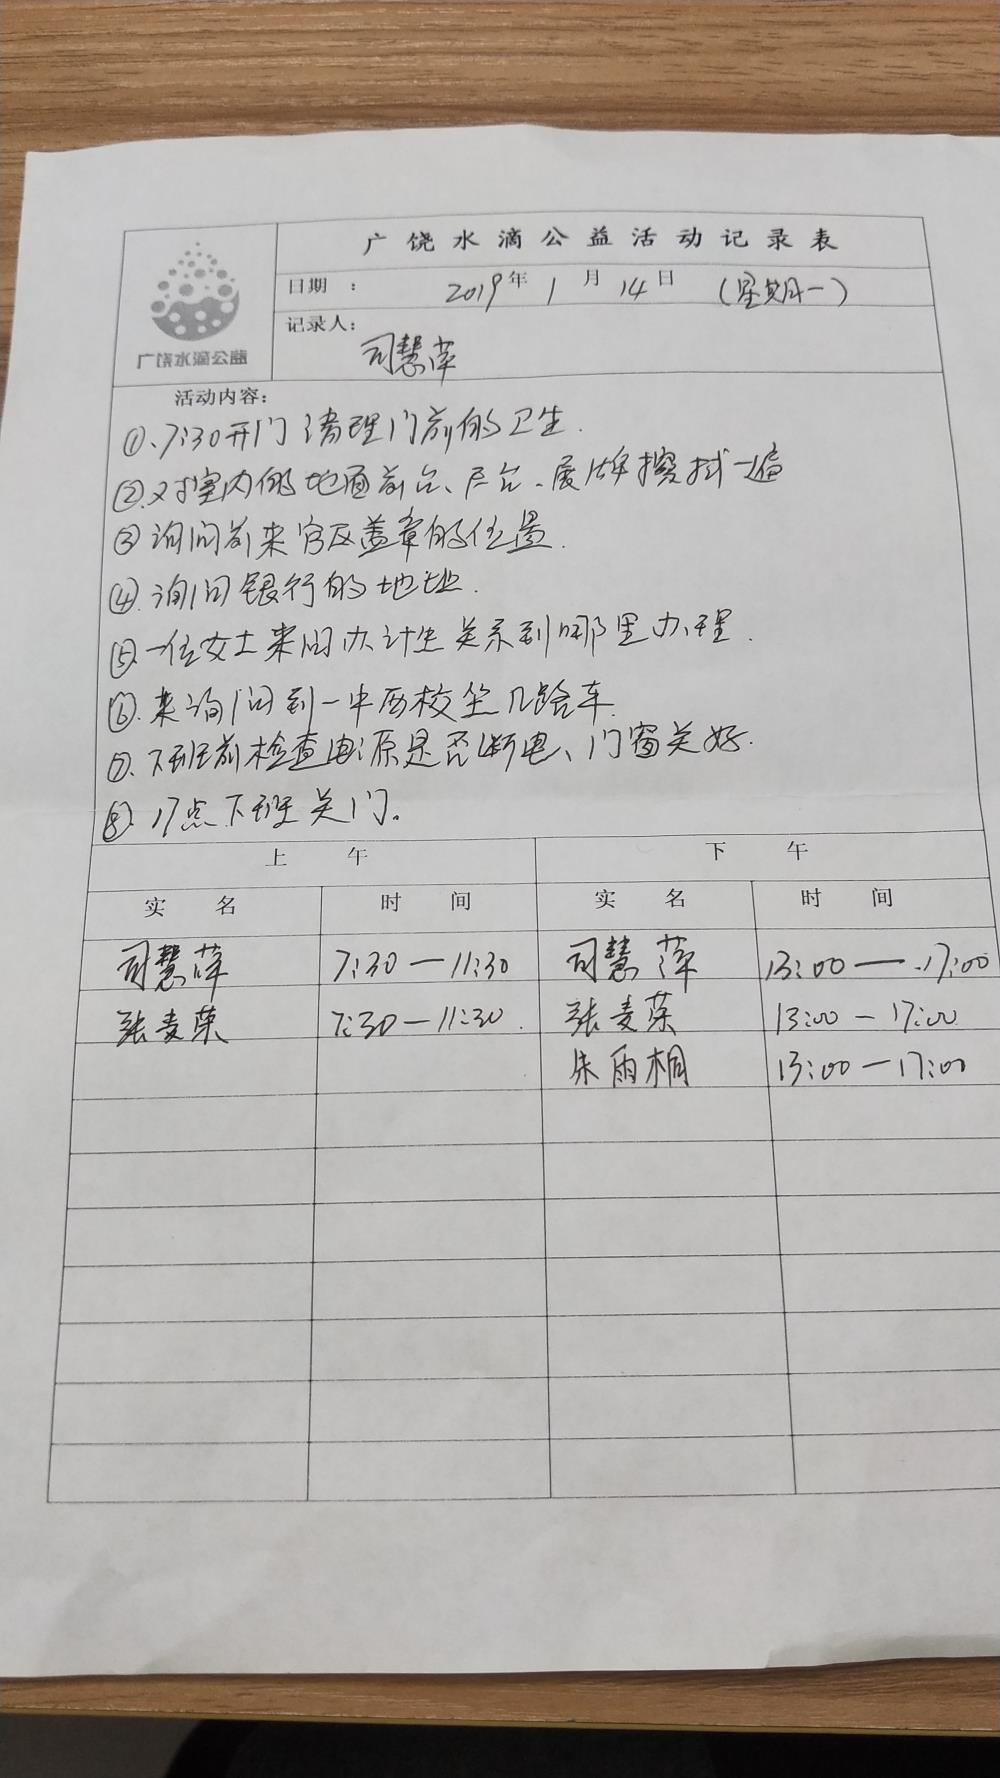 广饶水滴公益活动记录表
广饶水滴公益
日期 : 2019年 1 月 14 日 (星期一)
记录人: 司慧萍
活动内容:
①、7:30开门 清理门前的卫生.
②、对室内的地面前台、户台、展牌擦拭一遍
③ 询问前来 盖章的位置.
④.询问银行的地址.
⑤.一位女士来问办计生关系到哪里办理.
⑥.来询问到一中西校坐几路车.
⑦.下班前检查电源是否断电、门窗关好.
⑧.17点下班关门。
上 午 下 午
实 名 时 间 实 名 时 间
司慧萍 7:30—11:30 司慧萍 13:00—17:00
张麦荣 7:30—11:30. 张麦荣 13:00—17:00
朱雨桐 13:00—17:00